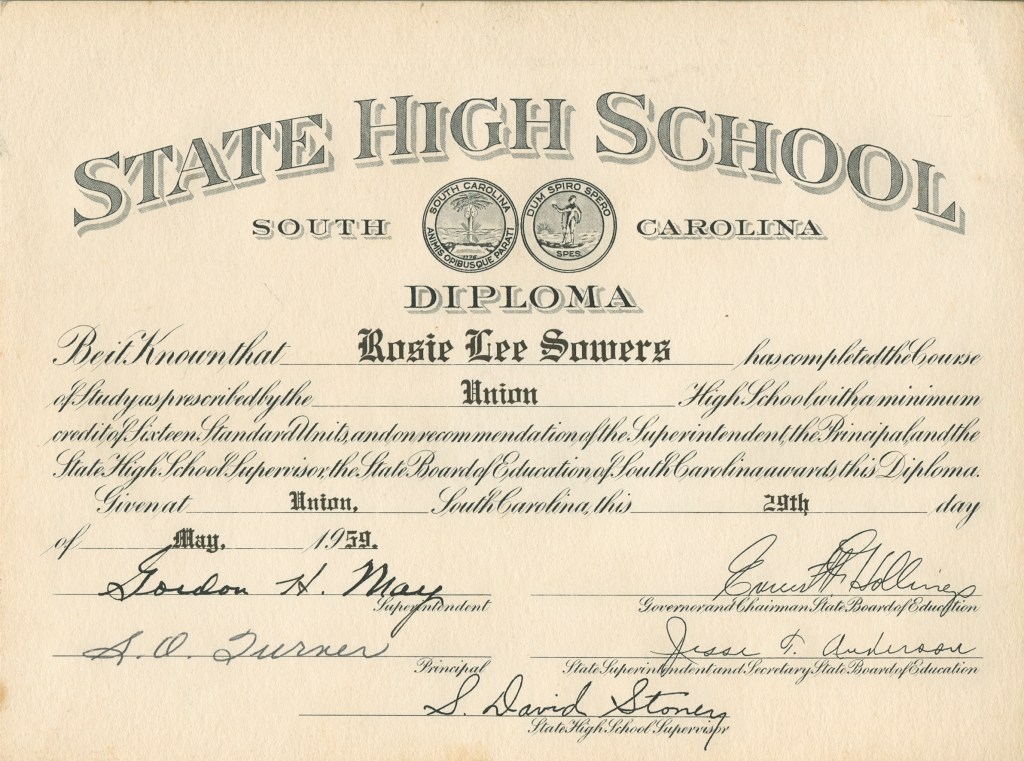 STATE HIGH SCHOOL
SOUTH CAROLINA
SOUTH CAROLINA
ANIMIS OPIBUSQUE PARATI
1776
DUM SPIRO SPERO
SPES
DIPLOMA
Be it Known that Rosie Lee Sowers has completed the Course
of Study as prescribed by the Union High School, with a minimum
credit of Sixteen Standard Units, and on recommendation of the Superintendent, the Principal, and the
State High School Supervisor, the State Board of Education, of South Carolina awards this Diploma.
Given at Union, South Carolina, this 29th day
of May, 1959.
Gordon H. May
Superintendent
Ernest F. Hollings
Governor and Chairman State Board of Education
S. O. Turner
Principal
Jesse T. Anderson
State Superintendent and Secretary State Board of Education
S. David Stoney
State High School Supervisor